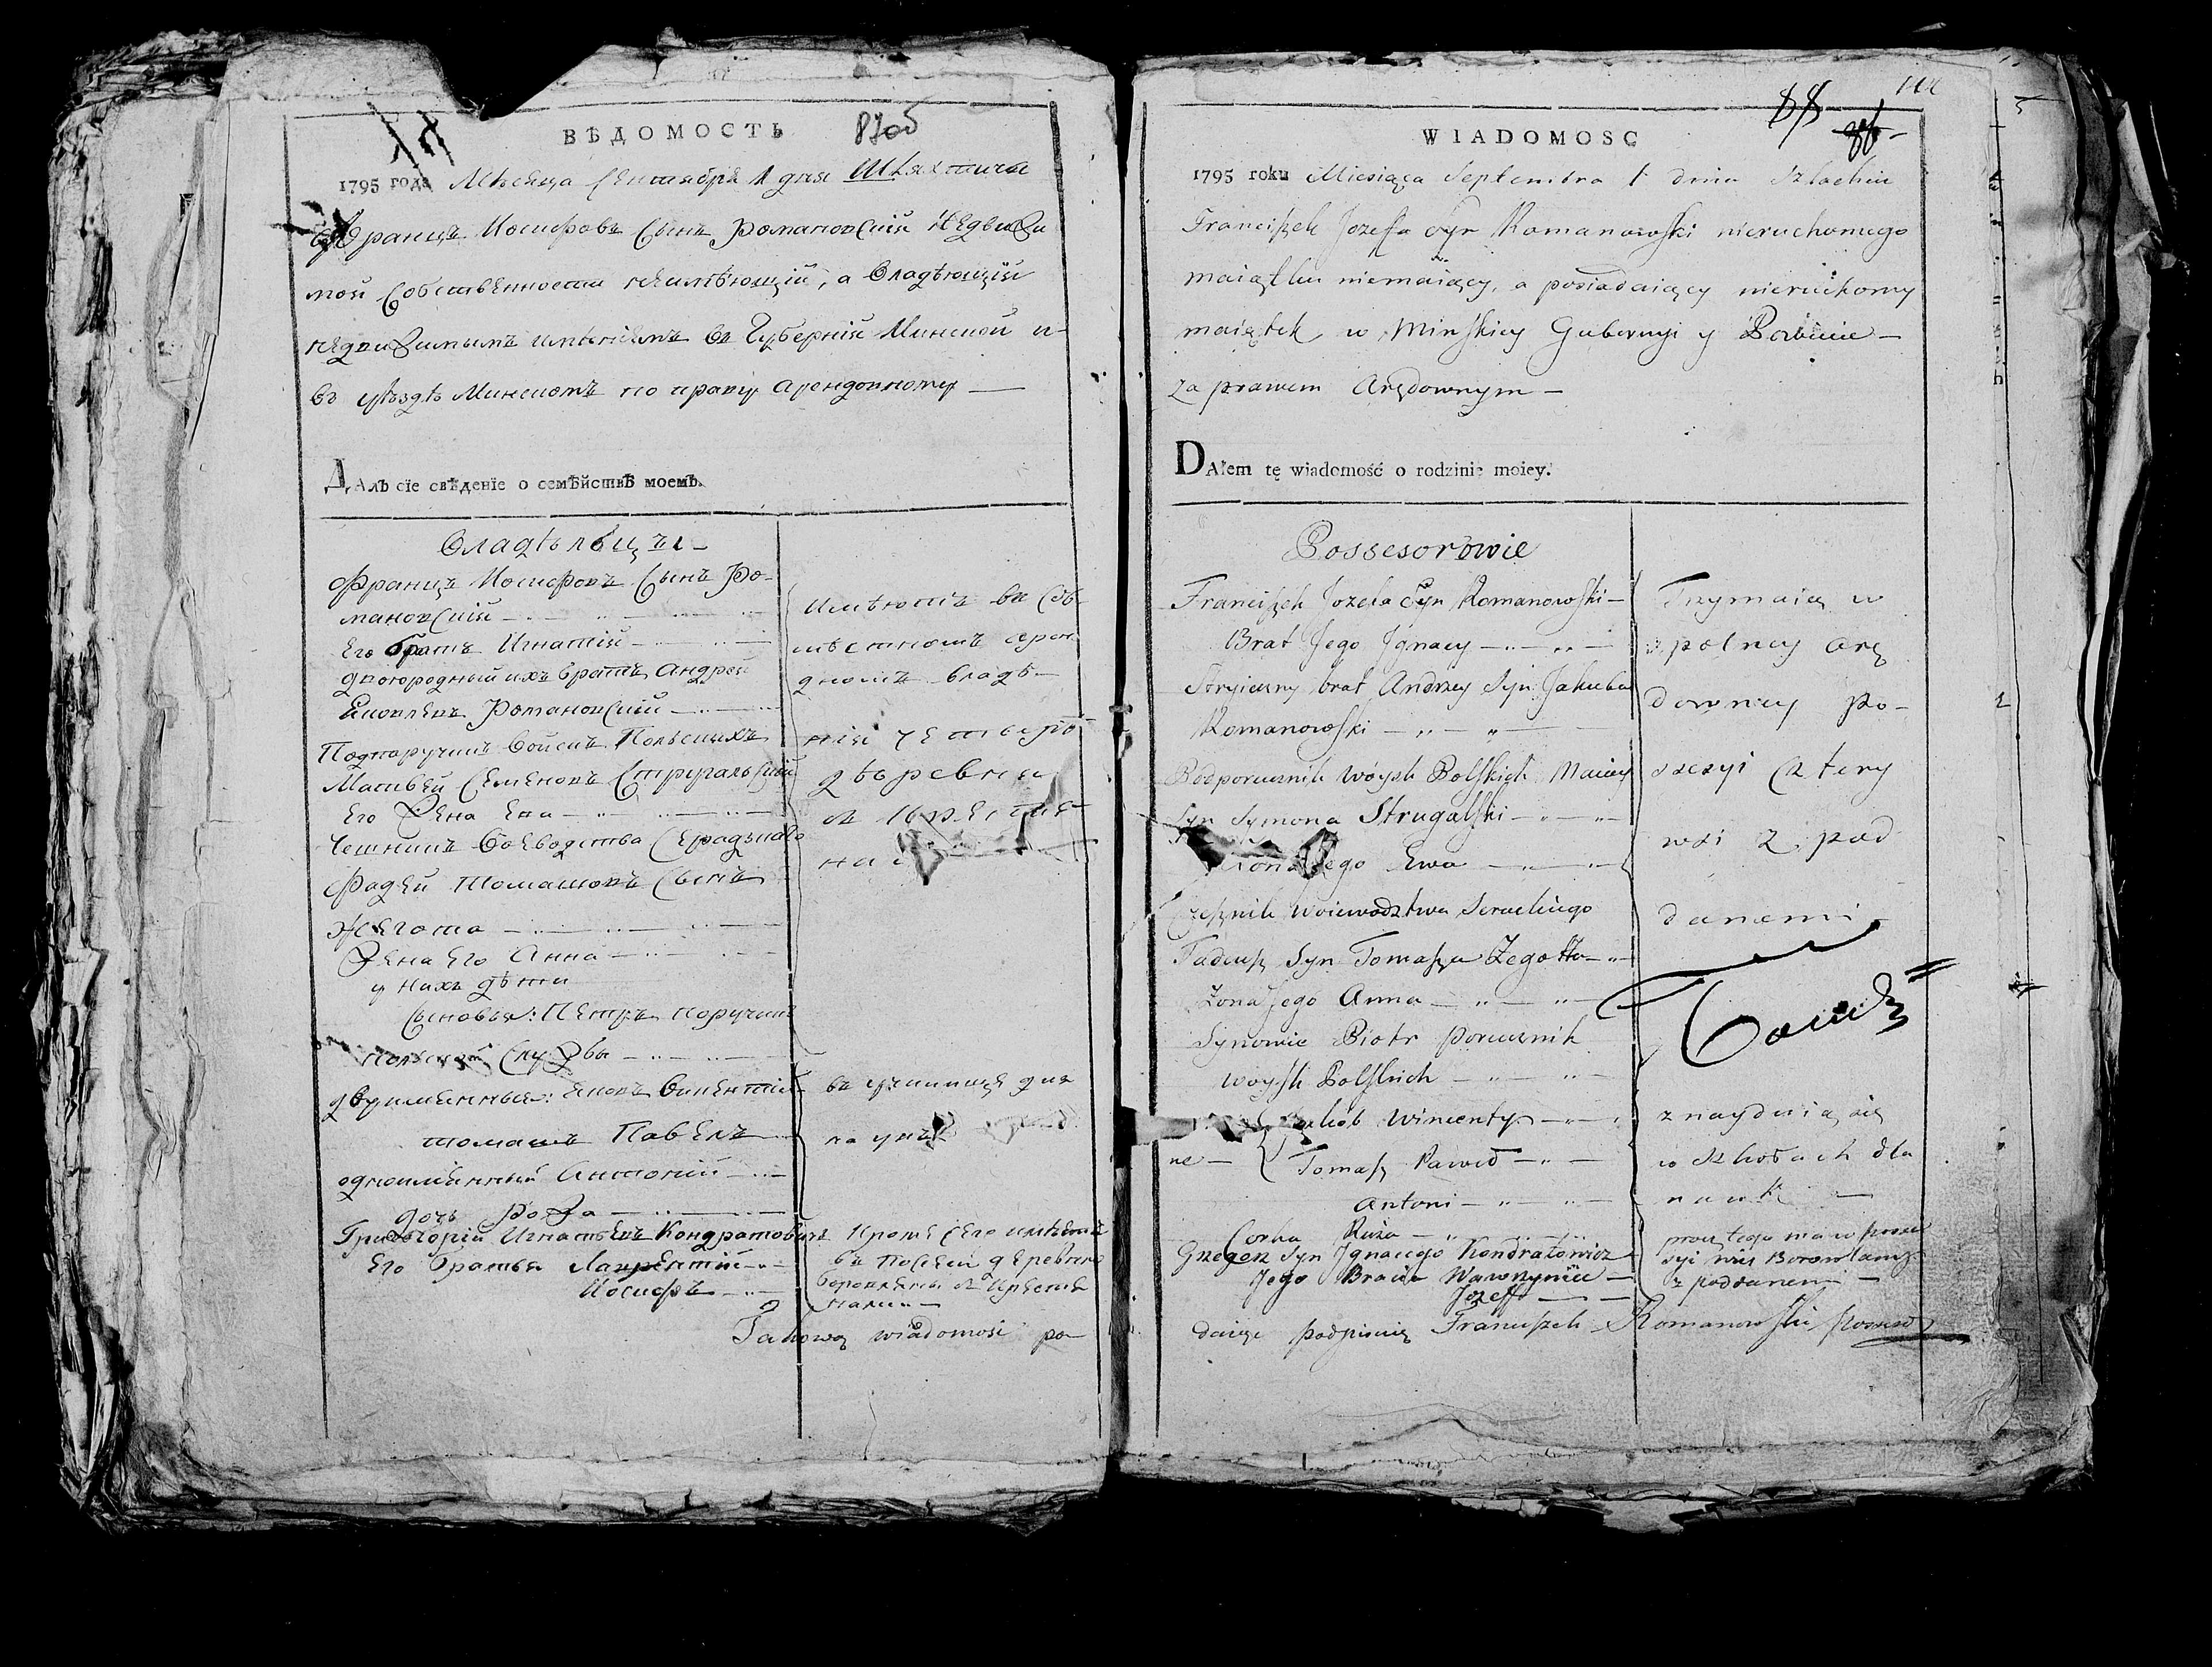 ВѢДОМОСТЬ
87об
1795 года Мѣсяца Сентября 1 дня Шляхтичь
Францъ Иосифовъ Сынъ Романовскій недвижи
мой Собственности неимѣющій, а Владѣющій
недвижимымъ имѣніемъ въ Губерніи Минской и
въ уѣздѣ Минскомъ по праву арендовному —
ДАлЪ сїе свѣденїе о семѢйствѢ моемЪ.
Владѣльцы
Францъ Иосифовъ Сынъ Ро-
мановскій
Его братъ Игнатій
двоюродный ихъ братъ Андрей
Яковлевъ Романовскій
Подпоручикъ Войскъ Польскихъ
Матвѣй Семеновъ Стругальскій
Его Жена Ева
Чешникъ Воеводства Серадзкаго
Фадей Томашовъ Сынъ
Жегота
Жена Его Анна
у нихъ дѣти
Сыновья: Петръ поручикъ
польской Службы
двуименныя: Яковъ Викентій
Томашъ Павелъ
одноименный Антоній
дочь Рожа
Григорій Игнатьевъ Кондратовичъ
Его братья Лаврентій
Иосифъ
Имѣютъ въ Сов-
мѣстномъ арен
дномъ владѣ-
ніи четыре
деревни
съ крестья
на
въ училище для
наукъ
Кроме сего имѣютъ
въ посесіи деревню
Боровляны съ крестья
нами
Takową wiadomość po-
WIADOMOSC
88
86
1795 roku Miesiąca Septembra 1 dnia Szlachcic
Franciszek Jozefa Syn Romanowski nieruchomego
maiątku niemaiący, a posiadaiący nieruchomy
maiątek w Minskiey Gubernyi y Powiecie —
za prawem Arędownym —
DAłem tę wiadomość o rodzinie moiey.
Possesorowie
Franciszek Jozefa Syn Romanowski —
Brat Jego Jgnacy
Stryieczny brat Andrzey Syn Jakuba
Romanowski
Podporucznik Woysk Polskich Maciey
Syn Symona Strugalski
Żona Jego Ewa
Czesznik Woiewodztwa Seradzkiego
Tadeusz Syn Tomasza Zegotta
Zona Jego Anna
Synowie Piotr Porucznik
Woysk Polskich
Jakób Wincenty
ne — Tomasz Paweł
Antoni
Corka Ruża
Grzegorz Syn Jgnacego Kondratowicz
Jego Bracia Wawrzyniec
Jozeff
Trzymaią w
spolney Arę
downey Po-
ssesyi Cztery
wsi z pod
danemi
znayduią się
w Szkołach dla
nauki
procz tego maią posse
syi wieś Borowlany
z poddanemi —
daiąc podpisuię Franciszek Romanowski